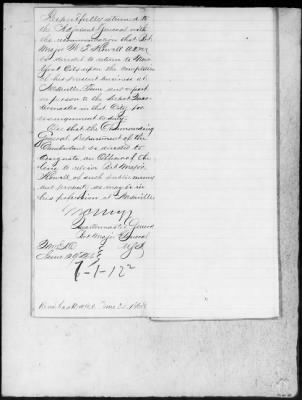 Respectfully returned to
the Adjutant General with
the recommendation that Bvt
Major W. T. Howell A.Q.M.
be ordered to return to New
York City upon the completion
of his present business at
Nashville, Tenn. and report
in person to the Depot Quar
termaster in that City for
reassignment to duty.
Also that the Commanding
General Department of the
Cumberland be directed to
designate an Officer of the
line to receive Bvt Major
Howell, of such public means
and property as may be in
his possession at Nashville
Quartermaster General
Bvt Major General
U.S.A.
Q.M.G.O.
June 29
7-1-12